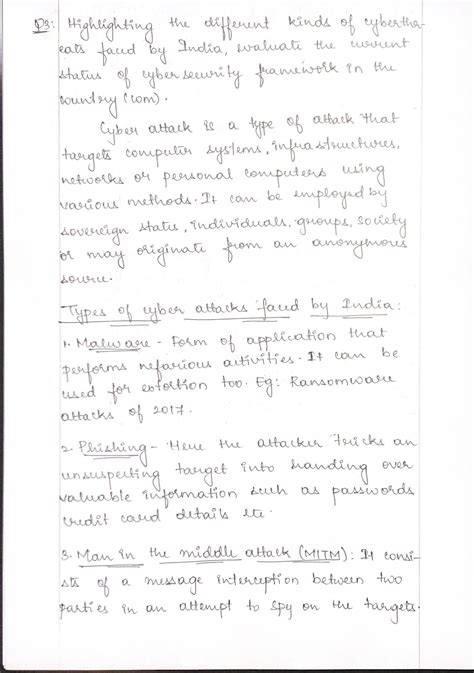 Q3: Highlighting the different kinds of cyberthre-
eats faced by India, evaluate the current
status of cyber security framework in the
country (10m).
Cyber attack is a type of attack that
targets computer systems, infrastructures,
networks or personal computers using
various methods. It can be employed by
sovereign states, individuals, groups, society
or may originate from an anonymous
source.
Types of cyber attacks faced by India:
1. Malware - Form of application that
performs nefarious activities. It can be
used for extortion too. Eg: Ransomware
attacks of 2017.
2. Phishing - Here the attacker tricks an
unsuspecting target into handing over
valuable information such as passwords
credit card details etc.
3. Man in the middle attack (MITM): It consi-
sts of a message interception between two
parties in an attempt to spy on the targets.